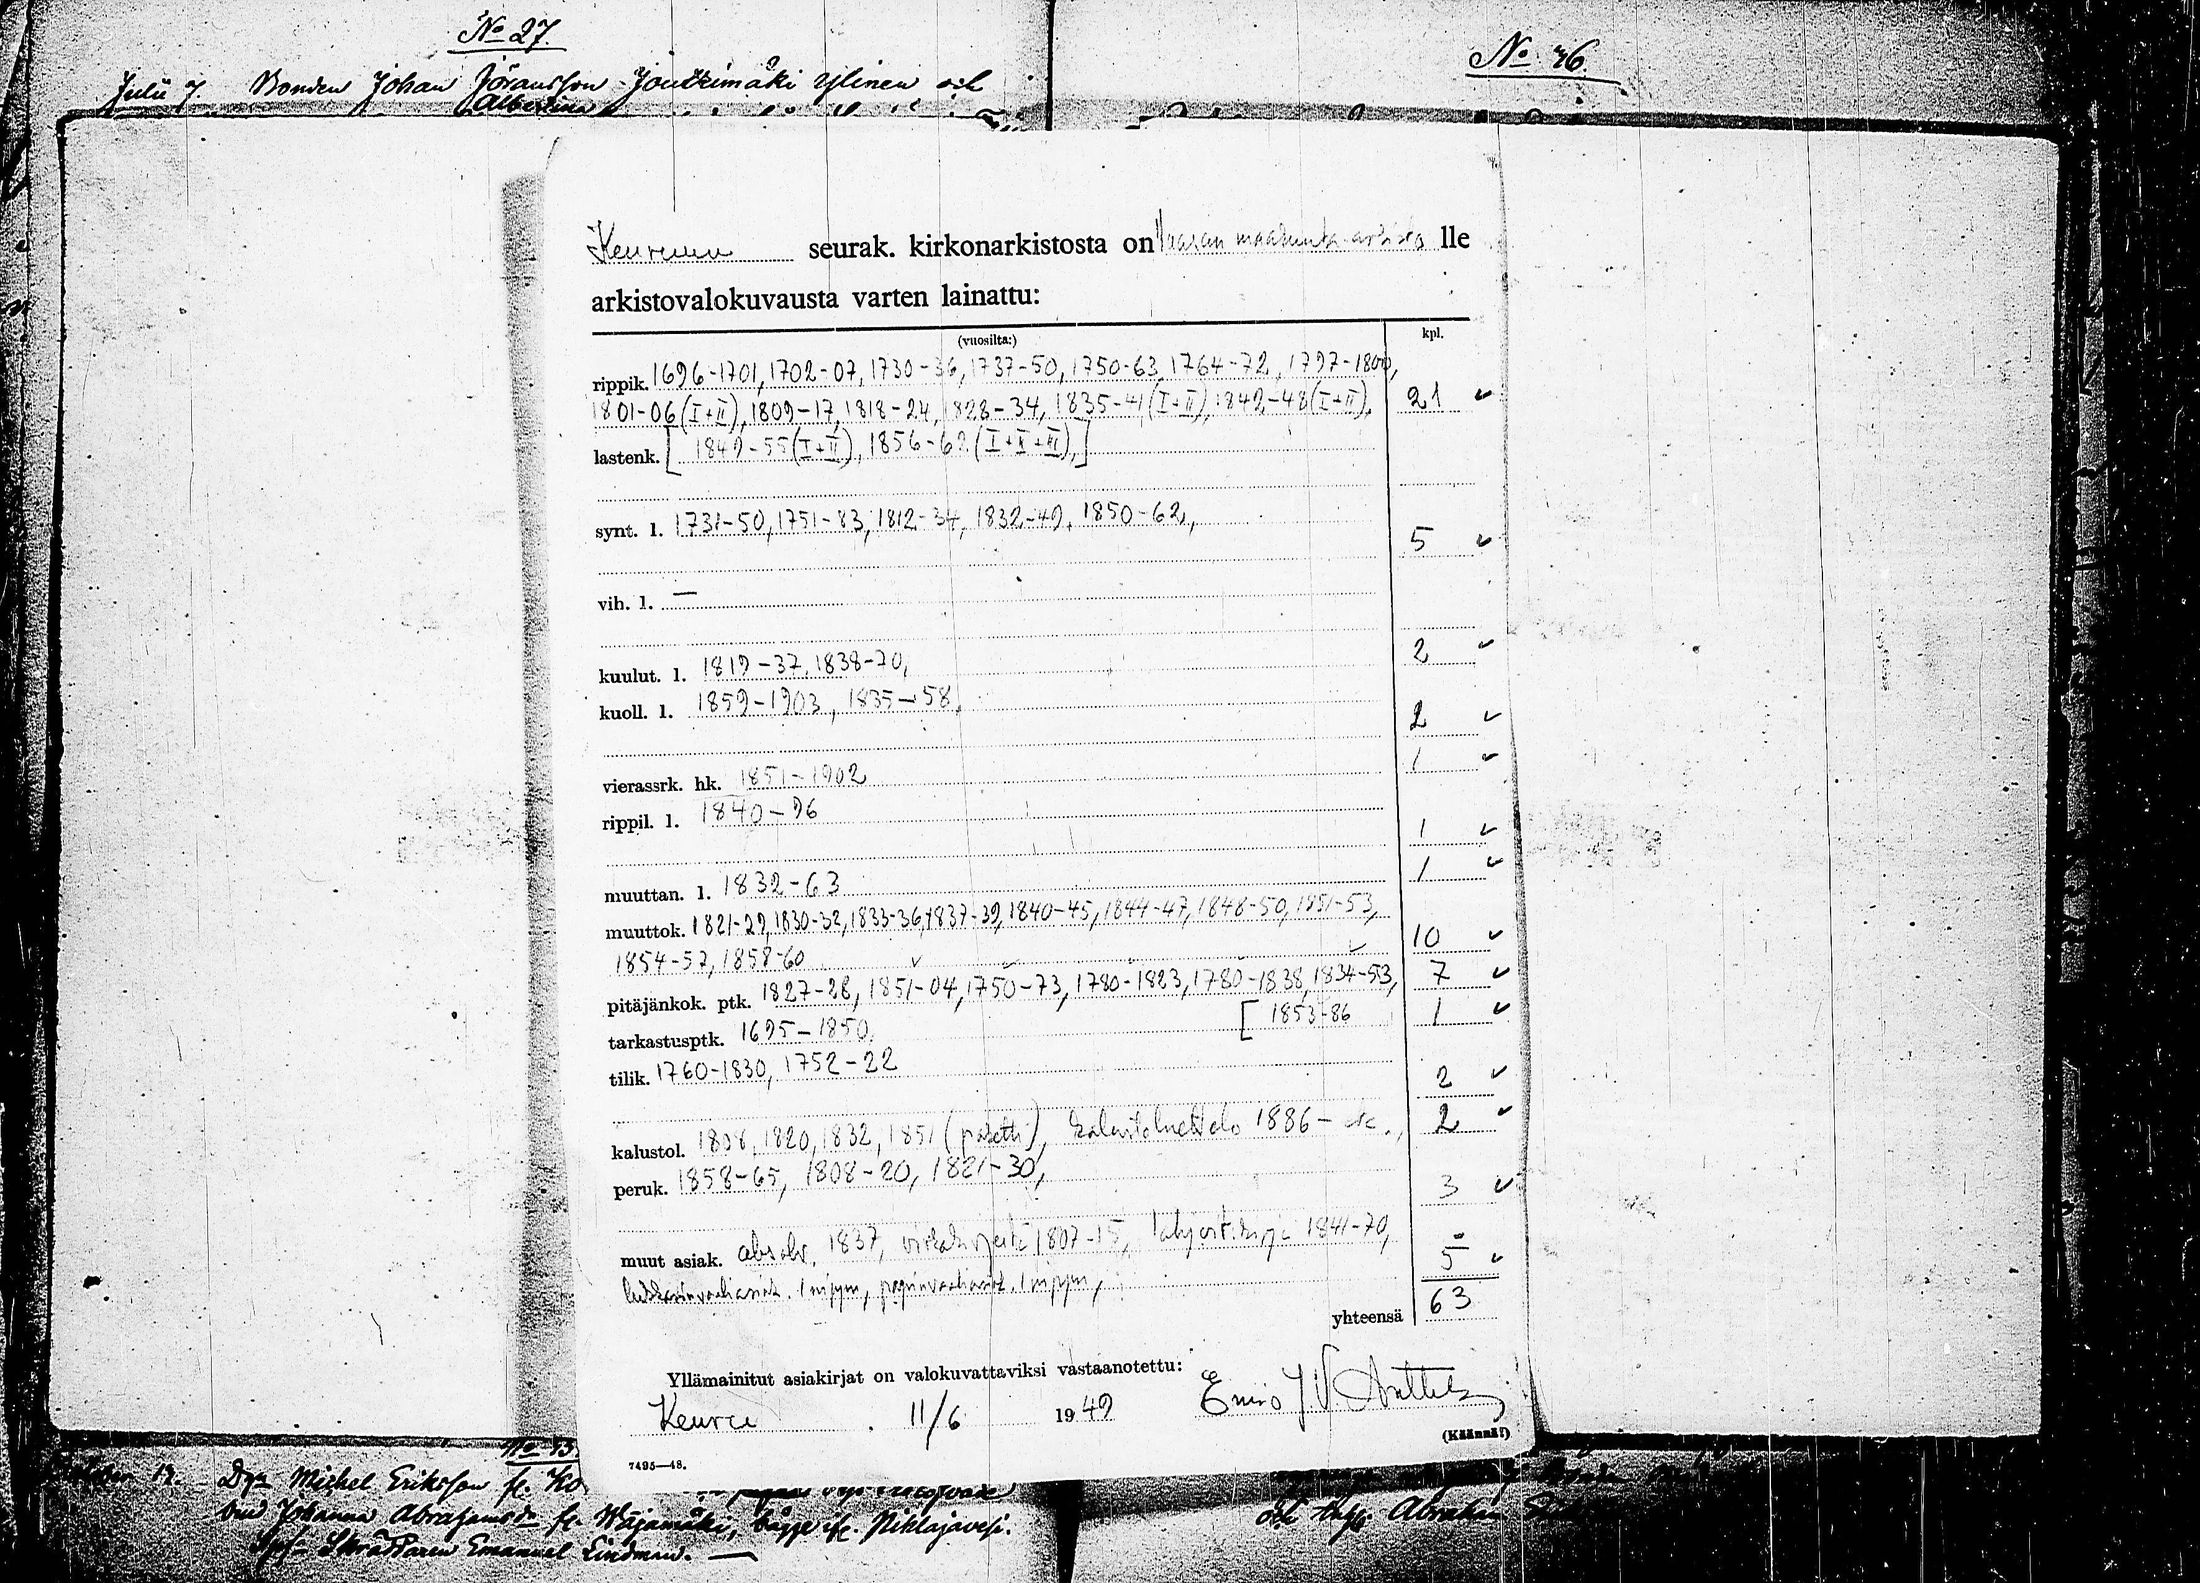 No 27.
Julii 7. Bonden Johan Jöransson Joukkimäki Ylinen och
Albertina
No 76.
Keuruun seurak. kirkonarkistosta on Vaasan maakunta-arkisto lle
arkistovalokuvausta varten lainattu:
(vuosilta:) kpl.
rippik. 1696-1701, 1702-07, 1730-36, 1737-50, 1750-63, 1764-72, 1797-1800,
1801-06 (I+II), 1809-17, 1818-24, 1828-34, 1835-41 (I+II), 1842-48 (I+II), 21 ✓
lastenk. [1849-55 (I+II), 1856-62 (I+II+III),]
synt. l. 1731-50, 1751-83, 1812-34, 1832-49, 1850-62,
5 ✓
vih. l. —
kuulut. l. 1819-37, 1838-70, 2 ✓
kuoll. l. 1859-1903, 1835-58,
2 ✓
vierassrk. hk. 1851-1902 1 ✓
rippil. l. 1840-96
1 ✓
muuttan. l. 1832-63 1 ✓
muuttok. 1821-29, 1830-32, 1833-36, 1837-39, 1840-45, 1844-47, 1848-50, 1851-53,
1854-57, 1858-60 10 ✓
pitäjänkok. ptk. 1827-28, 1851-04, 1750-73, 1780-1823, 1780-1838, 1834-53, 7 ✓
[1853-86
tarkastusptk. 1695-1850. 1 ✓
tilik. 1760-1830, 1752-22
2 ✓
kalustol. 1808, 1820, 1832, 1851 (paketti), kalustoluettelo 1886- 2 ✓
peruk. 1858-65, 1808-20, 1821-30,
3 ✓
muut asiak. absolv. 1837, virkakirjeitä 1807-15, lahjoit.kirja 1841-70,
5 ✓
lukkarinvaaliasiak. 1 nippu, papinvaaliasiak. 1 nippu,
yhteensä 63
Yllämainitut asiakirjat on valokuvattaviksi vastaanotettu:
Keuruu. 11/6 1949 Eino J. V. Anttila
(Käännä!)
7495—48.
Dgn Michel Eriksson fr. Ko
och Johanna Abrahamsdr fr. Wäjamäki, bägge ifr. Pihlajavesi.
Skräddaren Emanuel Lindman. —
och Abraham